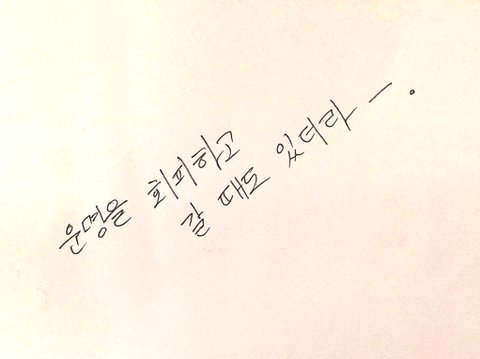 운명을 회피하고
갈 때도 있더라 ー.